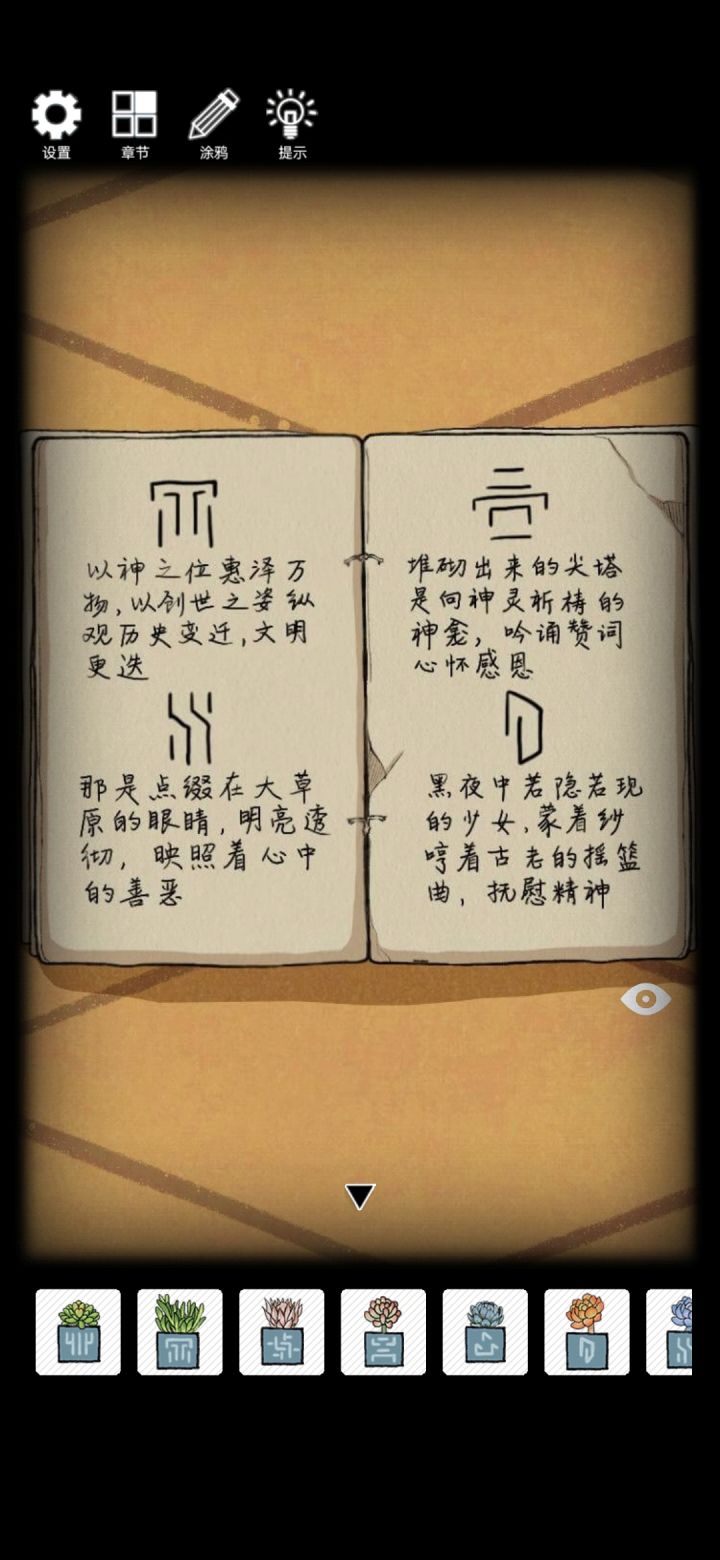 设置 章节 涂鸦 提示
以神之位惠泽万
物,以创世之姿纵
观历史变迁,文明
更迭
那是点缀在大草
原的眼睛,明亮透
彻,映照着心中
的善恶
堆砌出来的尖塔
是向神灵祈祷的
神龛,吟诵赞词
心怀感恩
黑夜中若隐若现
的少女,蒙着纱
哼着古老的摇篮
曲,抚慰精神